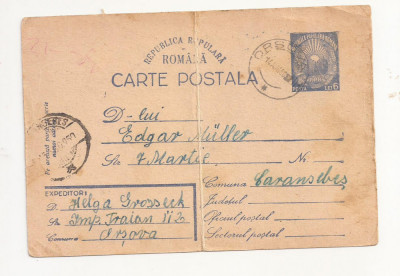 REPUBLICA POPULARĂ
ROMÂNĂ
CARTE POSTALA
D-lui
Edgar Müller
Str. 7 Martie Nr.
Comuna Caransebeș
Județul
Oficiul poștal
Sectorul poștal
EXPEDITOR:
D. Helga Grosseck
Str. Imp. Traian 113
Comuna Orșova